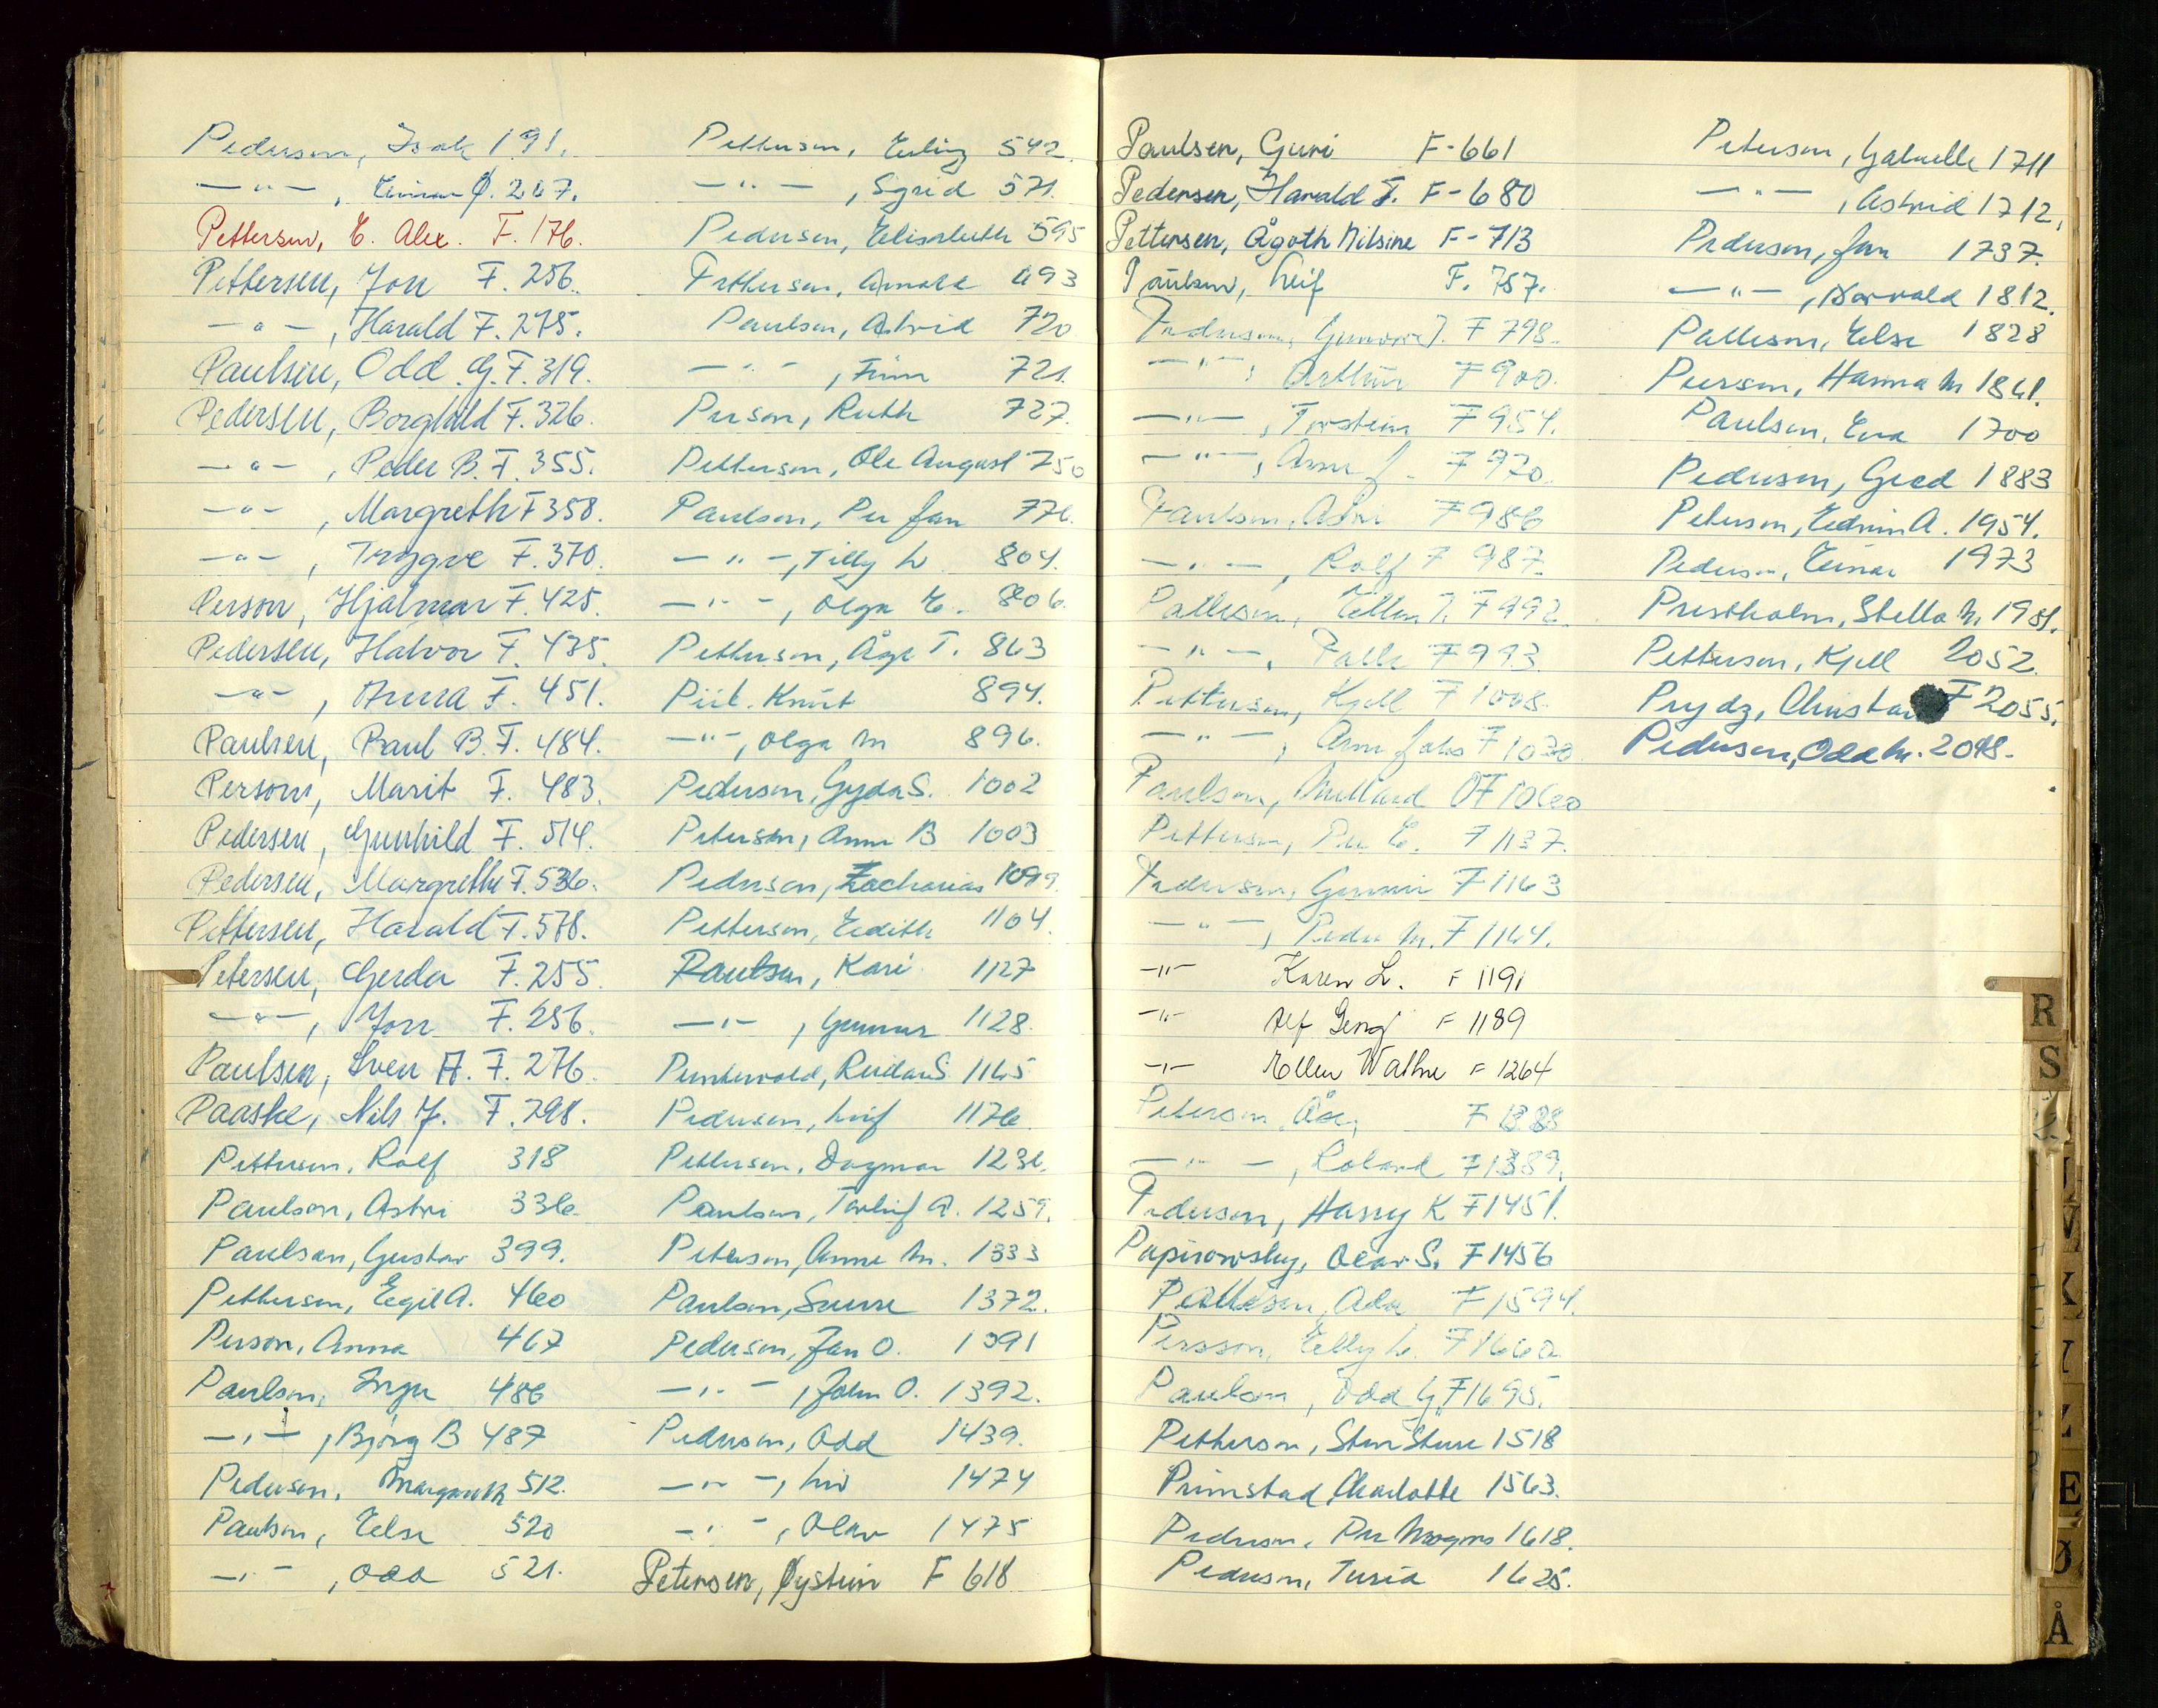 Pedersen, Isak 191.
— " — , Einar Ø. 267.
Pettersen, E. Alex. F. 176.
Pettersen, Jon F. 256.
— " — , Harald F. 275.
Paulsen, Odd G. F. 319.
Pedersen, Borghild F. 326.
— " — , Peder B. F. 355.
— " — , Margreth F 358.
— " — , Tryggve F. 370.
Person, Hjalmar F. 425.
Pedersen, Halvor F. 435.
— " — , Anna F. 451.
Paulsen, Paul B. F. 484.
Person, Marit F. 483.
Pedersen, Gunhild F. 514.
Pedersen, Margrethe F. 536.
Pettersen, Harald F. 578.
Petersen, Gerda F. 255.
— " — , Jon F. 256.
Paulsen, Sven A. F. 276.
Paaske, Nils J. F. 298.
Pettersen, Rolf 318
Paulsen, Astri 336
Paulsen, Gustav 399.
Pettersen, Egil A. 460
Person, Anna 467
Paulsen, Inga 486
— " — , Bjørg B 487
Pedersen, Margareth 512.
Paulsen, Else 520
— " — , Odd 521.
Pettersen, Erling 542.
— " — , Sigrid 571.
Pedersen, Elisabeth 595
Pettersen, Arnold 693
Paulsen, Astrid 720
— " — , Finn 721.
Person, Ruth 727.
Pettersen, Ole August 750
Paulsen, Per Jan 776.
— " — , Tilly W 804.
— " — , Olga E. 806.
Pettersen, Åge T. 863
Piil. Knut 894.
— " — , Olga M 896.
Pedersen, Gyda S. 1002
Petersen, Anna B 1003
Pedersen, Zacharias 1099.
Pettersen, Edith 1104.
Paulsen, Kari 1127
— " — , Gunnar 1128.
Reidar S. 1165
Pedersen, Leif 1176
Pettersen, Dagmar 1236.
Paulsen, Torleif A. 1259.
Petersen, Anne M. 1333
Paulsen, Sverre 1372.
Pedersen, Jan O. 1391
— " — , John O. 1392.
Pedersen, Odd 1439.
— " — , Liv 1474
— " — , Olav 1475
Petersen, Øystein F 618
Paulsen, Guri F-661
Pedersen, Harald F. F-680
Pettersen, Ågoth Nilsine F-713
Paulsen, Leif F. 757.
Pedersen, Gunvor J. F 798.
— " — , Arthur F 900.
— " — , Torstein F 954.
— " — , Arne J. F 970.
Paulsen, Astri F 986
— " — , Rolf F 987.
Pallesen, Ellen J. F 992.
— " — , Palle F 993.
Pettersen, Kjell F 1008.
— " — , Arne Johs F 1030.
Paulsen, Millard O F 1060
Pettersen, Per E. F 1137.
Pedersen, Gunnar F 1163
— " — , Peder M. F 1164.
— " — Karen L. F 1191
— " — Alf Georg F 1189
— " — Ellen Wathne F 1264
Petersen, Åse, F 1388
— " — , Roland F 1389.
Pedersen, Harry K F 1451.
Papirowsky, Olav S. F 1456
Pallesen, Ada F 1594.
Persson, Elly L. F 1660.
Paulsen, Odd G. F 1695.
Petterson, Sten Sture 1518
Primstad, Charlotte 1563.
Pedersen, Per Magnus 1618.
Pedersen, Turid 1625.
Petersen, Gabrielle 1711
— " — , Astrid 1712.
Pedersen, Jan 1737.
— " — , Norvald 1812.
Pallesen, Else 1828
Person, Hanna M 1861.
Paulsen, Eva 1700
Pedersen, Gerd 1883
Petersen, Edvin A. 1954.
Pedersen, Einar 1973
Prestholm, Stella M. 1981.
Pettersen, Kjell 2052.
Prydz, Christian F 2055.
Pedersen, Odd M. 2098.
R
S
E
Ø
Å